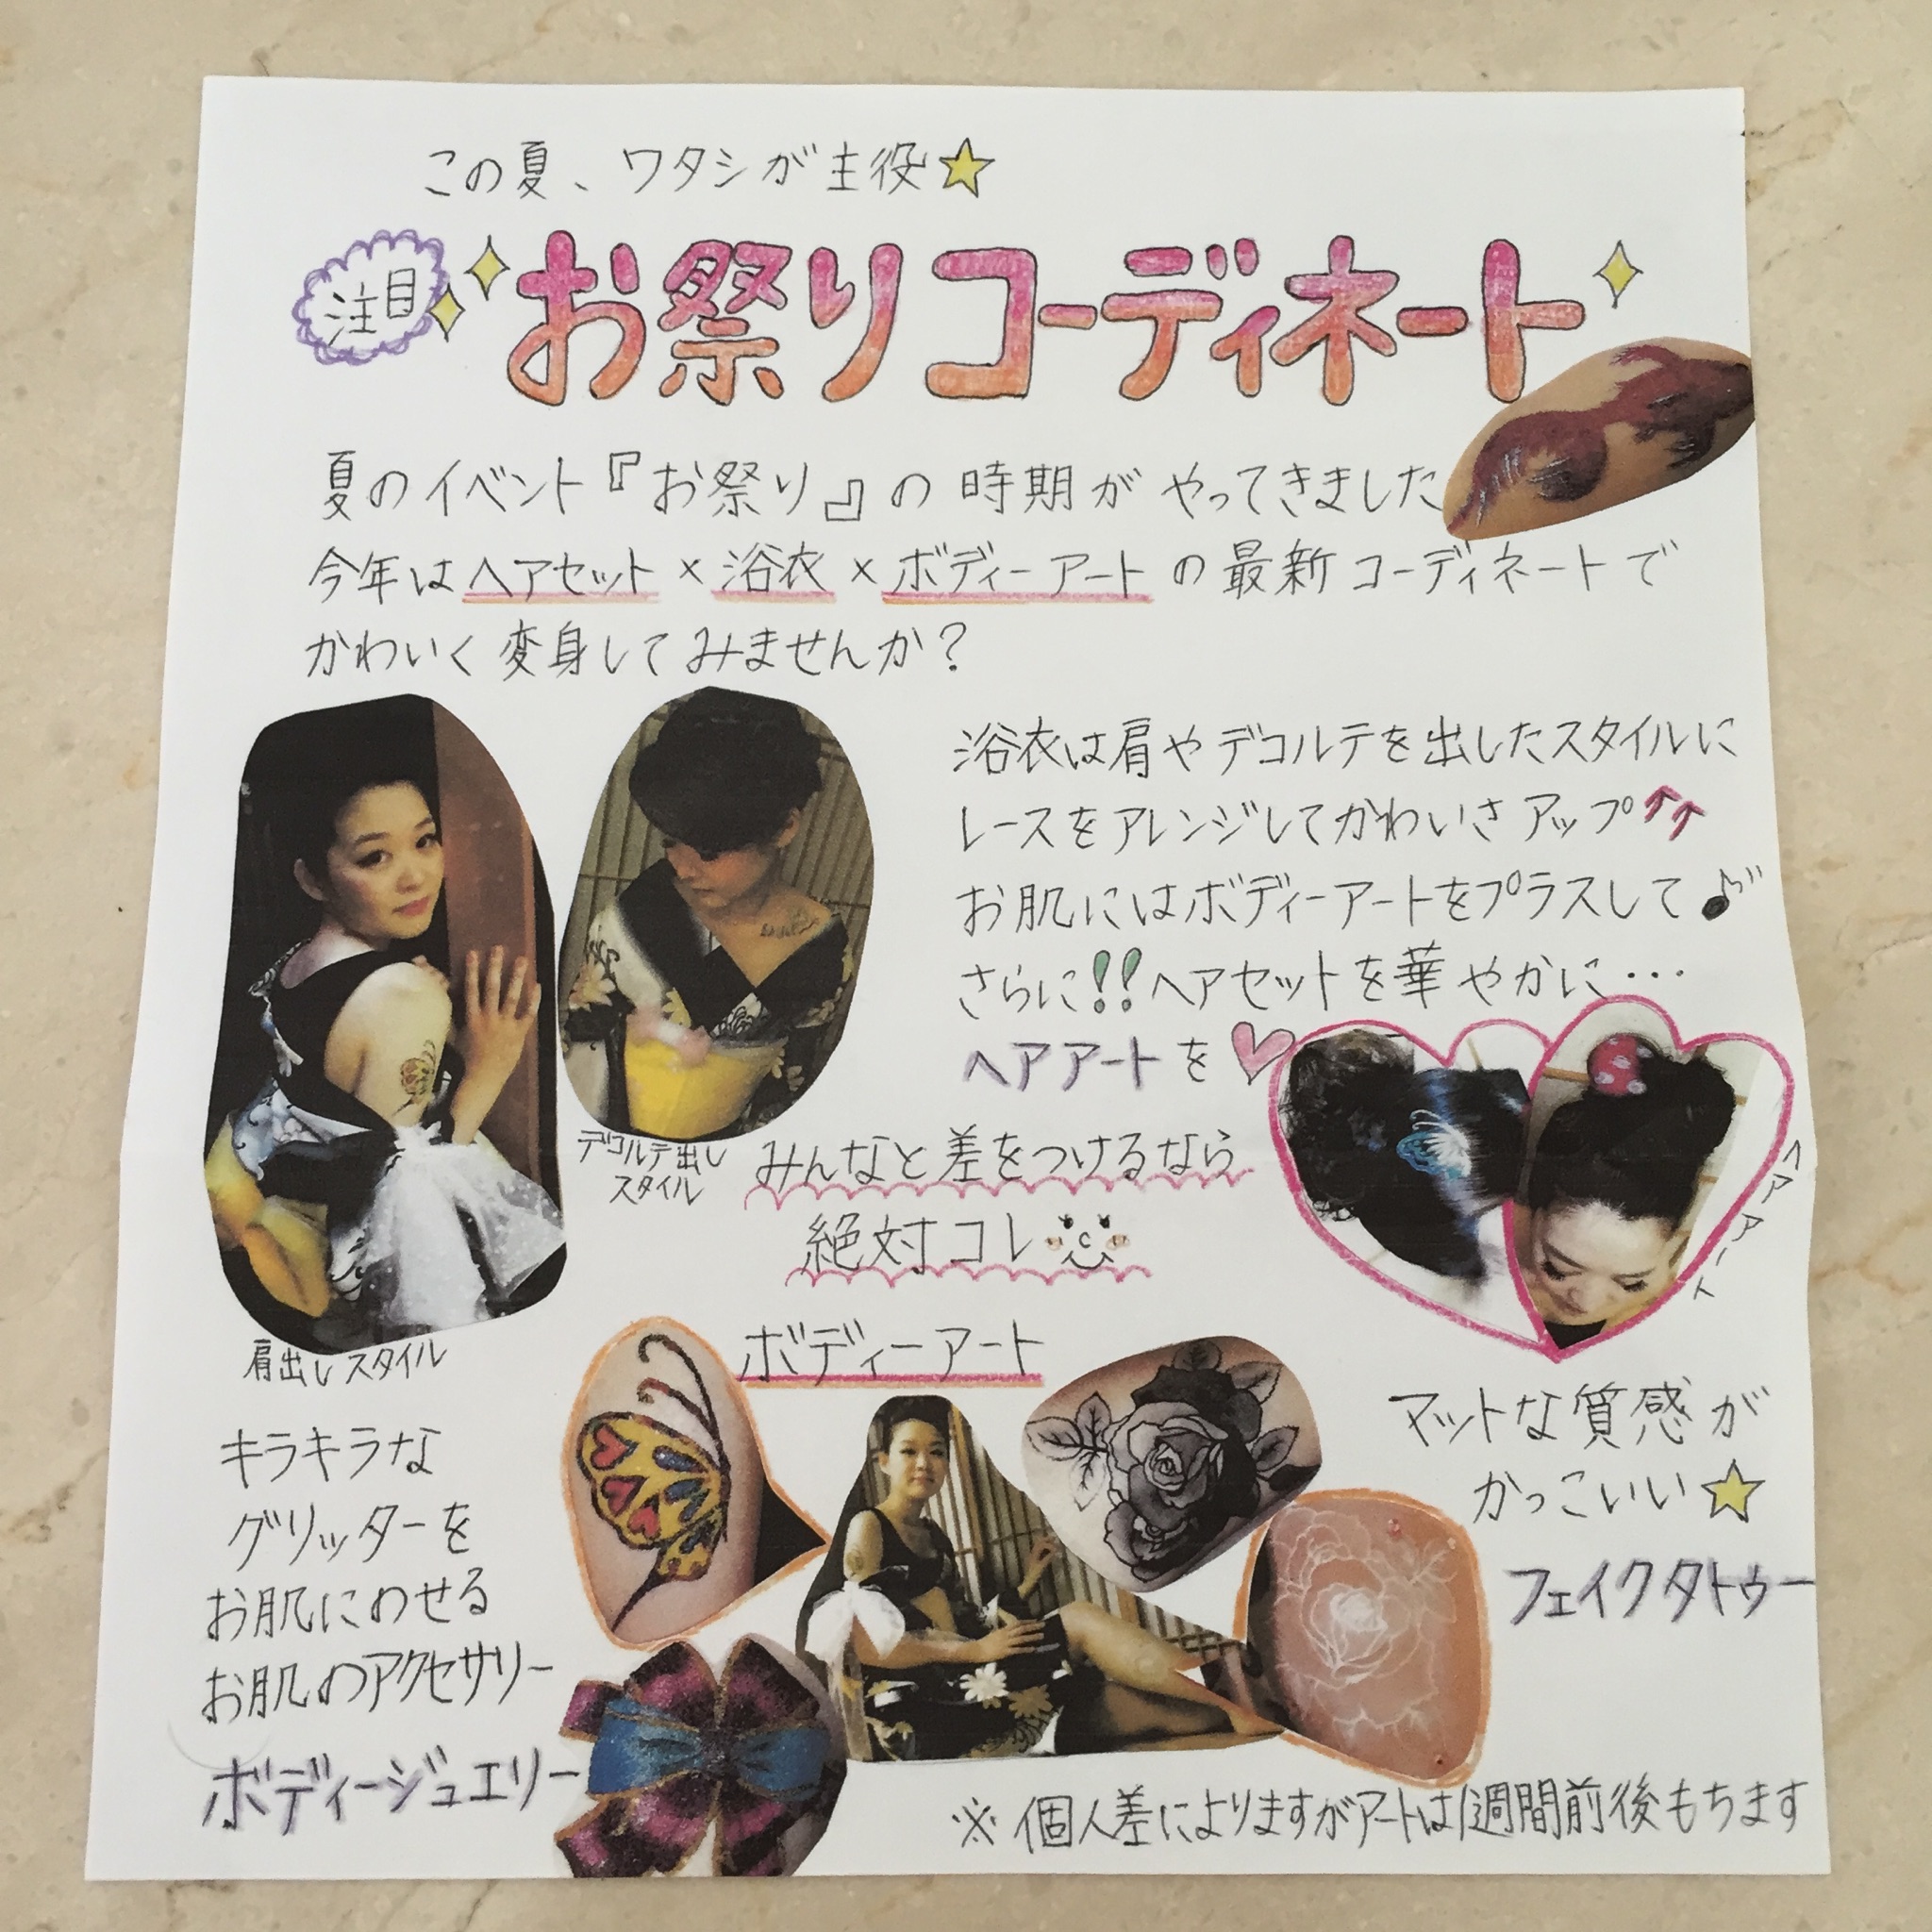 この夏、ワタシが主役☆
注目
お祭りコーディネート
夏のイベント『お祭り』の時期がやってきました
今年はヘアセット×浴衣×ボディーアートの最新コーディネートで
かわいく変身してみませんか？
浴衣は肩やデコルテを出したスタイルに
レースをアレンジしてかわいさアップ↑↑
お肌にはボディーアートをプラスして♪
さらに!!ヘアセットを華やかに…
ヘアアートを♡
ヘアアート
デコルテ出し
スタイル
みんなと差をつけるなら
絶対コレ
肩出しスタイル
ボディーアート
キラキラな
グリッターを
お肌にのせる
お肌のアクセサリー
ボディージュエリー
マットな質感が
かっこいい☆
フェイクタトゥー
※個人差によりますがアートは1週間前後もちます